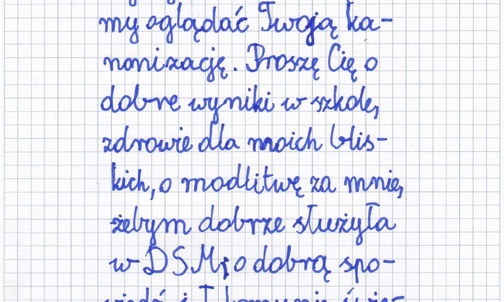 my oglądać Twoją ka-
nonizację. Proszę Cię o
dobre wyniki w szkole,
zdrowie dla moich blis-
kich, o modlitwę za mnie,
żebym dobrze służyła
w DSM, o dobrą spo-
wiedź i I komunię świę-